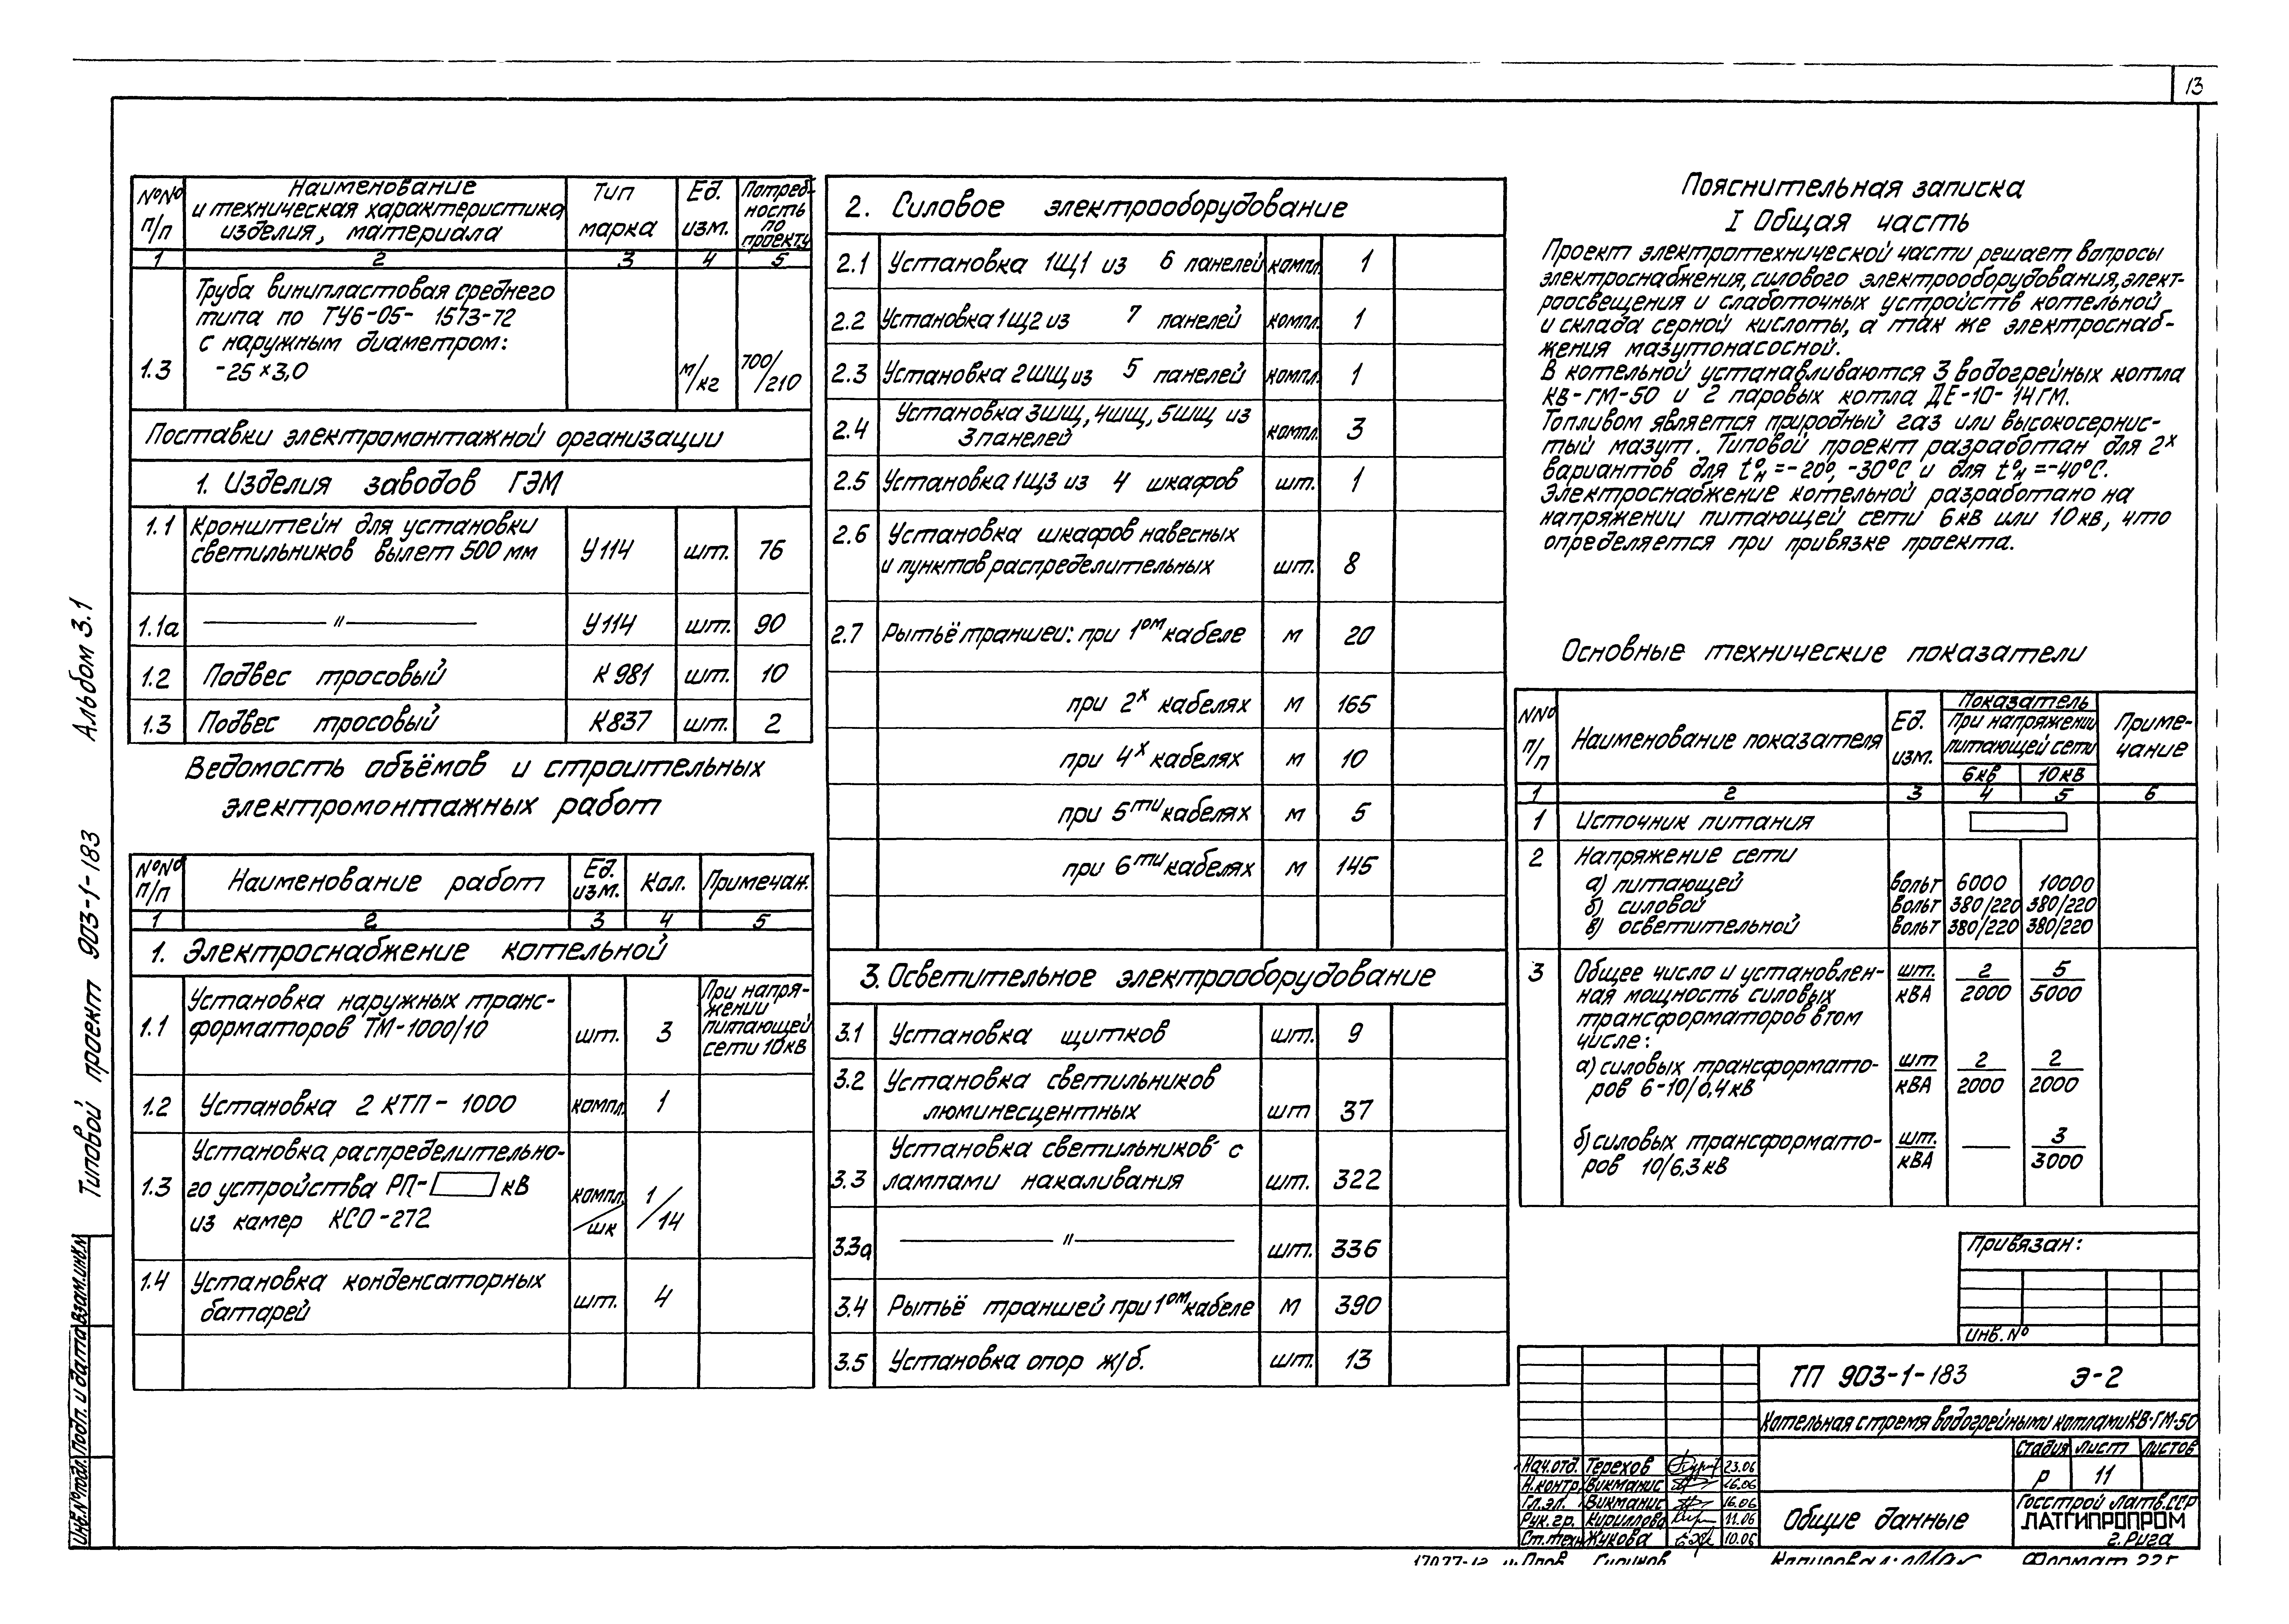 13
Альбом 3.1
Типовой проект 903-1-183
Взам.инв.№
Подп. и дата
Инв.№подл.
№№ п/п | Наименование и техническая характеристика изделия, материала | Тип марка | Ед. изм. | Потреб-ность по проекту
1 | 2 | 3 | 4 | 5
Труба винипластовая среднего
типа по ТУ6-05-1573-72
с наружным диаметром:
1.3 | -25×3,0 | м/кг | 700/210
Поставки электромонтажной организации
1. Изделия заводов ГЭМ
1.1 | Кронштейн для установки
светильников вылет 500 мм | У114 | шт. | 76
1.1а | —〃— | У114 | шт. | 90
1.2 | Подвес тросовый | К981 | шт. | 10
1.3 | Подвес тросовый | К837 | шт. | 2
Ведомость объёмов и строительных
электромонтажных работ
№№ п/п | Наименование работ | Ед. изм. | Кол. | Примечан.
1 | 2 | 3 | 4 | 5
1. Электроснабжение котельной
1.1 | Установка наружных транс-
форматоров ТМ-1000/10 | шт. | 3 | При напря-
жении
питающей
сети 10кв
1.2 | Установка 2 КТП-1000 | компл. | 1
Установка распределительно-
1.3 | го устройства РП- кв
из камер КСО-272 | компл./шк | 1/14
1.4 | Установка конденсаторных
батарей | шт. | 4
2. Силовое электрооборудование
2.1 | Установка 1Щ1 из 6 панелей | компл. | 1
2.2 | Установка 1Щ2 из 7 панелей | компл. | 1
2.3 | Установка 2ШЩ из 5 панелей | компл. | 1
2.4 | Установка 3ШЩ, 4ШЩ, 5ШЩ из
3 панелей | компл. | 3
2.5 | Установка 1Щ3 из 4 шкафов | шт. | 1
2.6 | Установка шкафов навесных
и пунктов распределительных | шт. | 8
2.7 | Рытьё траншеи: при 1ом кабеле | м | 20
при 2х кабелях | м | 165
при 4х кабелях | м | 10
при 5ти кабелях | м | 5
при 6ти кабелях | м | 145
3. Осветительное электрооборудование
3.1 | Установка щитков | шт. | 9
3.2 | Установка светильников
люминесцентных | шт | 37
Установка светильников с
3.3 | лампами накаливания | шт. | 322
3.3а | —〃— | шт. | 336
3.4 | Рытьё траншей при 1ом кабеле | м | 390
3.5 | Установка опор ж/б. | шт. | 13
Пояснительная записка
I Общая часть
Проект электротехнической части решает вопросы
электроснабжения, силового электрооборудования, элект-
роосвещения и слаботочных устройств котельной
и склада серной кислоты, а так же электроснаб-
жения мазутонасосной.
В котельной устанавливаются 3 водогрейных котла
КВ-ГМ-50 и 2 паровых котла ДЕ-10-14ГМ.
Топливом является природный газ или высокосернис-
тый мазут. Типовой проект разработан для 2х
вариантов для t°н=-20°, -30°С и для t°н=-40°С.
Электроснабжение котельной разработано на
напряжении питающей сети 6кв или 10кв, что
определяется при привязке проекта.
Основные технические показатели
№№ п/п | Наименование показателя | Ед. изм. | Показатель
При напряжении
питающей сети
6кв | 10кв | Приме-чание
1 | 2 | 3 | 4 | 5 | 6
1 | Источник питания
2 | Напряжение сети
а) питающей | вольт | 6000 | 10000
б) силовой | вольт | 380/220 | 380/220
в) осветительной | вольт | 380/220 | 380/220
3 | Общее число и установлен-
ная мощность силовых
трансформаторов в том
числе: | шт./кВА | 2/2000 | 5/5000
а) силовых трансформато-
ров 6-10/0,4кВ | шт/кВА | 2/2000 | 2/2000
б) силовых трансформато-
ров 10/6,3кВ | шт./кВА | — | 3/3000
Привязан:
Инв.№
ТП 903-1-183 Э-2
Котельная с тремя водогрейными котлами КВ-ГМ-50
Стадия | Лист | Листов
Р | 11
Общие данные
Госстрой Латв.ССР
ЛАТГИПРОПРОМ
г.Рига
Нач.отд. Терехов 23.06
Н.контр. Викманис 16.06
Гл.эл. Викманис 16.06
Рук.гр. Кириллова 11.06
Ст.техн. Жукова 10.06
Формат 22Г